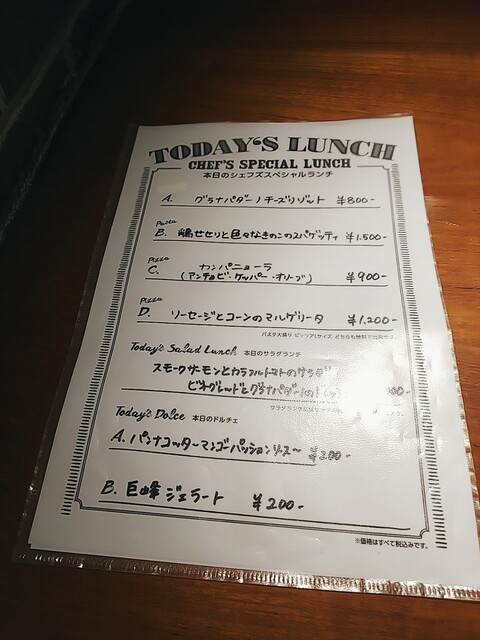 TODAY'S LUNCH
CHEF'S SPECIAL LUNCH
本日のシェフズスペシャルランチ
A. グラナパダーノチーズリゾット ¥800-
Pasta
B. 鶏せせりと色々なきのこのスパゲッティ ¥1.500-
Pizza
C. カンパニョーラ
(アンチョビ・ケッパー・オリーブ) ¥900-
Pizza
D. ソーセージとコーンのマルゲリータ ¥1.200-
パスタ大盛り ピッツァLサイズ どちらも無料で出来ます。
Today's Salad Lunch 本日のサラダランチ
スモークサーモンとカラフルトマトのサラダ
グラナパダーノのドレッ 00-
サラダランチには
Today's Dolce 本日のドルチェ
A. パンナコッタ〜マンゴーパッションソース〜 ¥200-
B. 巨峰ジェラート ¥200-
※価格はすべて税込みです。